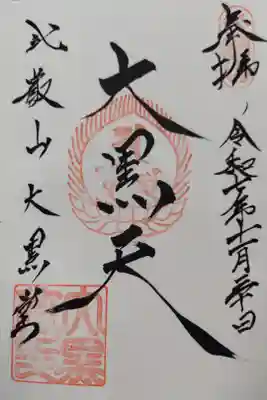 奉拝
令和七年十一月
大黒天
比叡山大黒堂